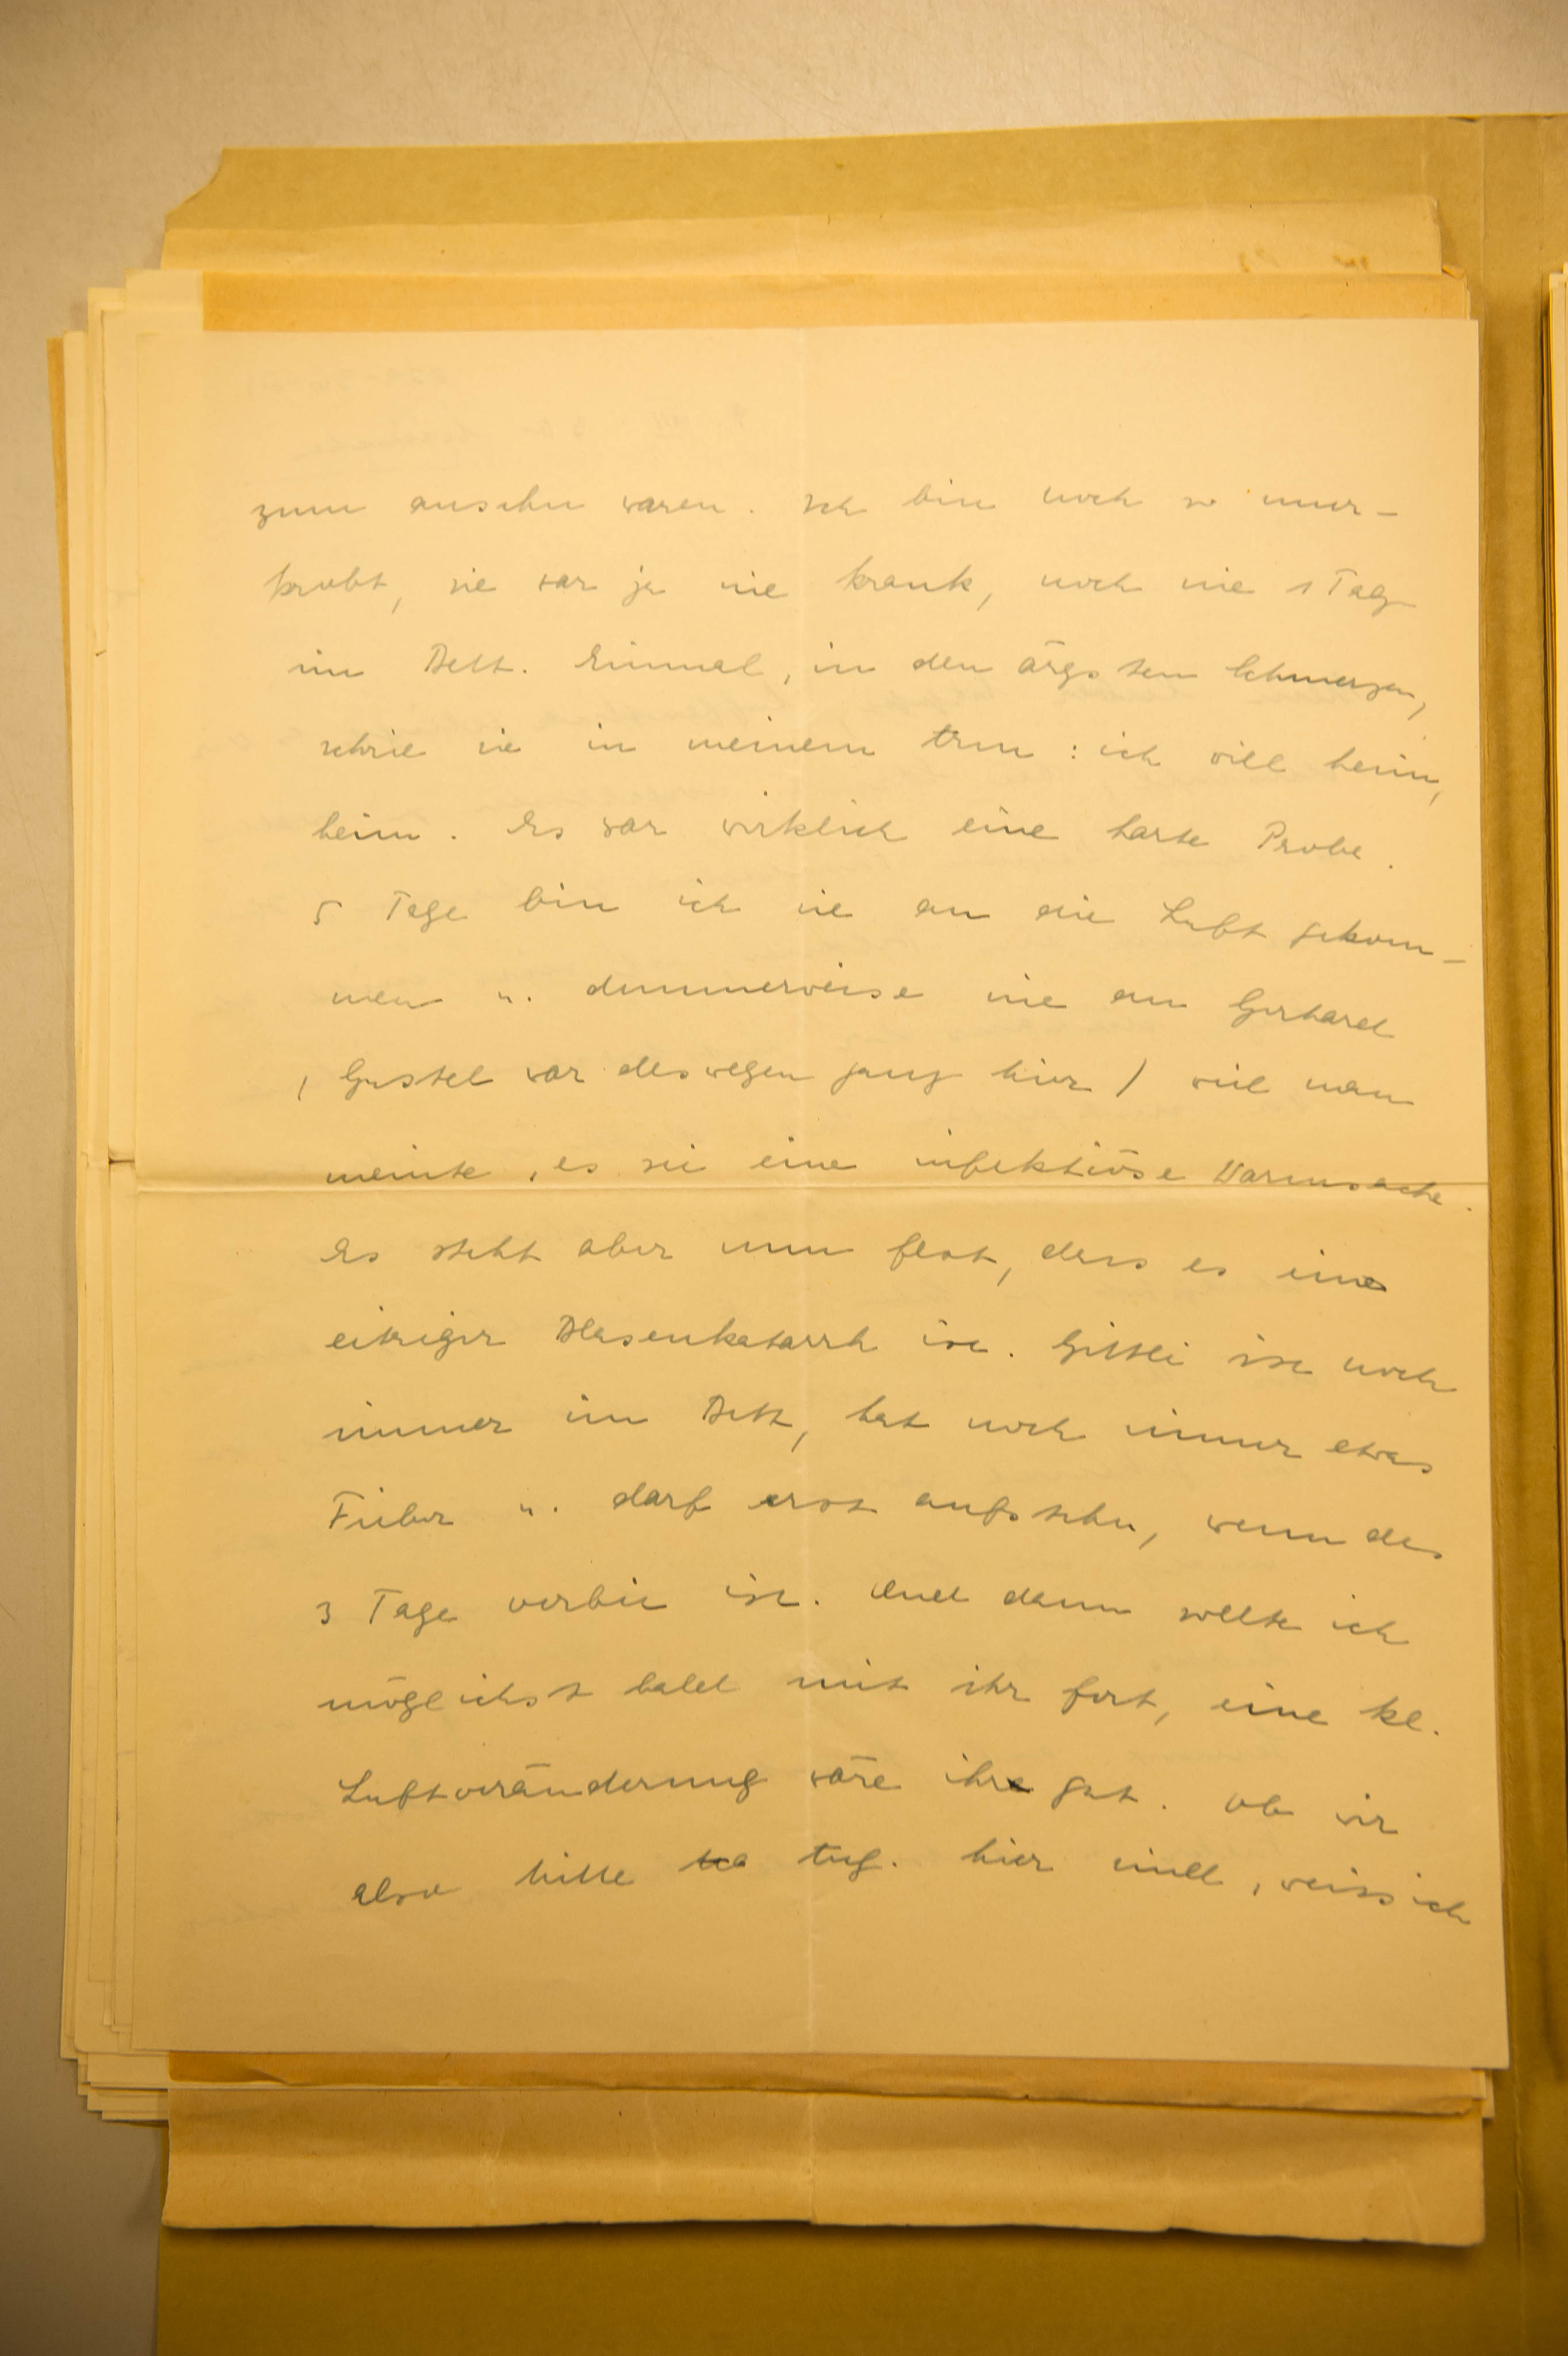 zum ansehn waren. Ich bin noch so uner-
probt, sie war ja nie krank, noch nie 1 Tag
im Bett. Einmal, in den ärgsten Schmerzen,
schrie sie in meinem Arm: ich will heim,
heim. Es war wirklich eine harte Probe.
5 Tage bin ich nie an die Luft gekom-
men u. dummerweise nie an Gerhard
(Gustel war deswegen ganz hier) weil man
meinte, es sei eine infektiöse Darmsache.
Es steht aber nun fest, dass es ein
eitriger Blasenkatarrh ist. Gittli ist noch
immer im Bett, hat noch immer etwas
Fieber u. darf erst aufstehn, wenn des
3 Tage vorbei ist. Und dann wollte ich
möglichst bald mit ihr fort, eine kl.
Luftveränderung wäre ihr gut. Ob wir
also bitte tug. hier sind, weiss ich